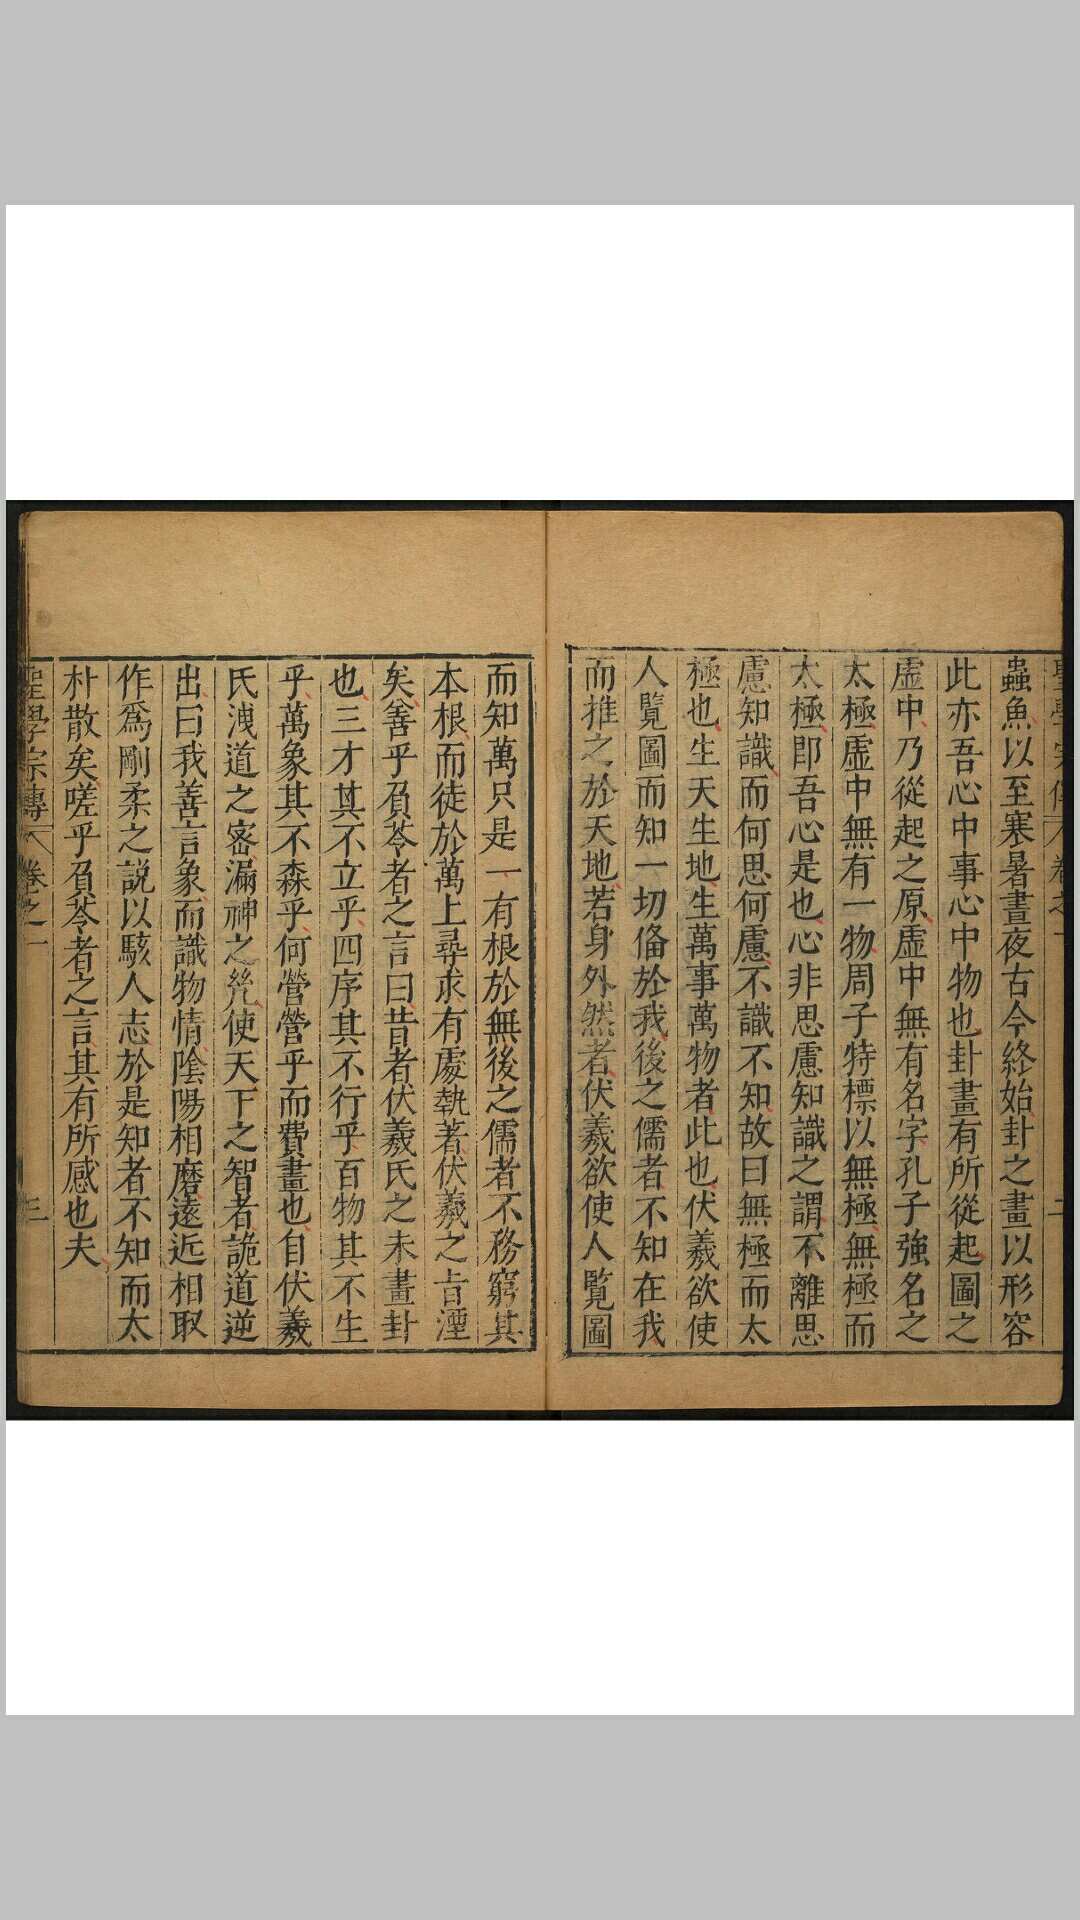 蟲魚以至寒暑晝夜古今終始卦之畫以形容
此亦吾心中事心中物也卦畫有所從起圖之
虛中乃從起之原虛中無有名字孔子強名之
太極虛中無有一物周子特標以無極無極而
太極卽吾心是也心非思慮知識之謂不離思
慮知識而何思何慮不識不知故曰無極而太
極也生天生地生萬事萬物者此也伏羲欲使
人覽圖而知一切俻於我後之儒者不知在我
而推之於天地若身外然者伏羲欲使人覽圖
而知萬只是一有根於無後之儒者不務窮其
本根而徒於萬上尋求有處執著伏羲之旨湮
矣善乎負苓者之言曰昔者伏羲氏之未畫卦
也三才其不立乎四序其不行乎百物其不生
乎萬象其不森乎何營營乎而費畫也自伏羲
氏洩道之密漏神之㡬使天下之智者詭道逆
出曰我善言象而識物情陰陽相磨遠近相取
作爲剛柔之說以駭人志於是知者不知而太
朴散矣嗟乎負苓者之言其有所感也夫
聖學宗傳 卷之一 三